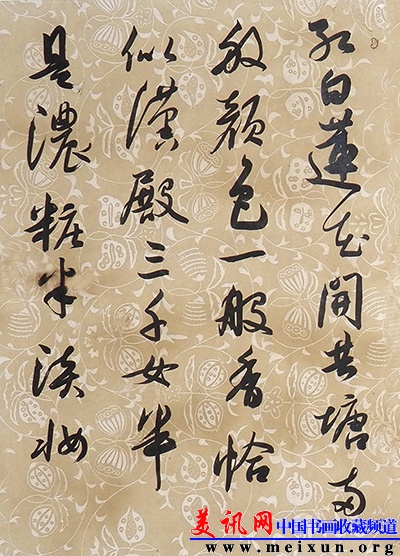 紅白蓮花開共塘兩
般顔色一般香恰
似漢殿三千女半
是濃粧半淡妝
美讯网 中国书画收藏频道
www.meixun.org